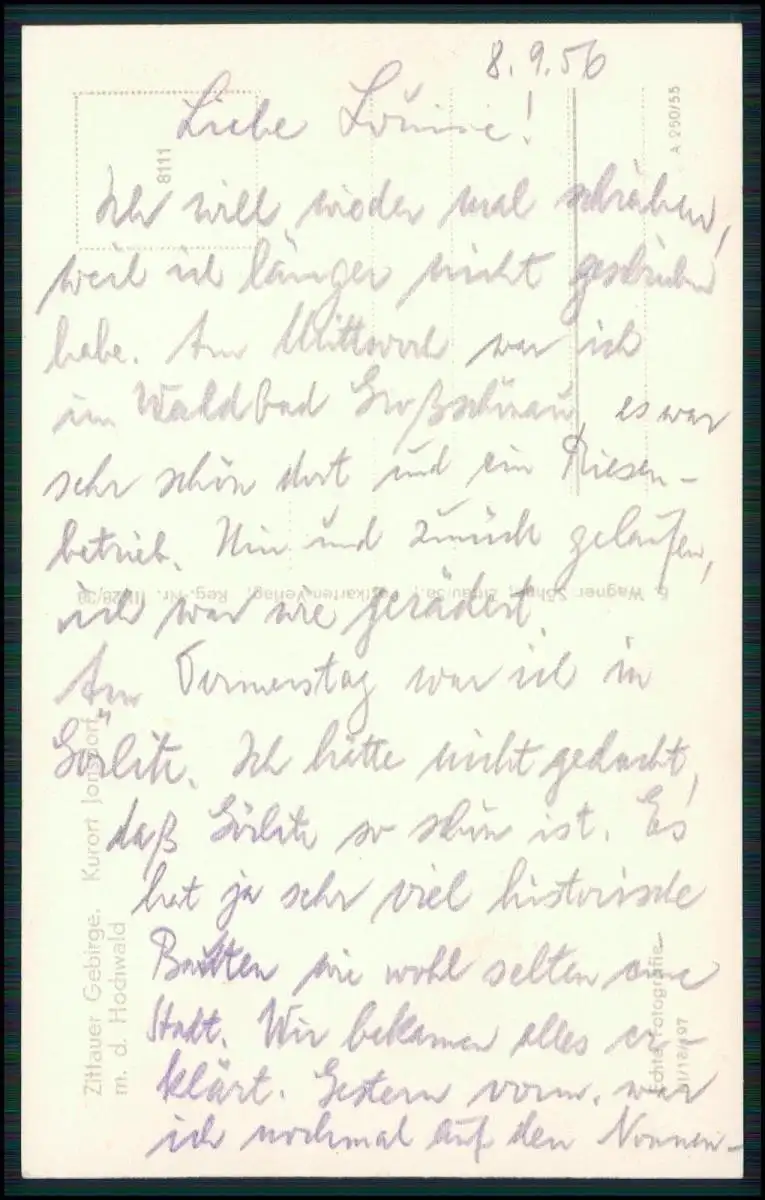 8.9.56
Liebe Louise!
Ich will wieder mal schreiben,
weil ich länger nicht geschrieben
habe. Am Mittwoch war ich
im Waldbad Großschönau, es war
sehr schön dort und ein Riesen-
betrieb. Hin und zurück gelaufen,
ich war wie gerädert.
Am Donnerstag war ich in
Görlitz. Ich hätte nicht gedacht,
daß Görlitz so schön ist. Es
hat ja sehr viel historische
Bauten wie wohl selten eine
Stadt. Wir bekamen alles er-
klärt. Gestern vorm. war
ich nochmal auf den Nonnen-
8111
A 250/55
E. Wagner Söhne, Zittau/Sa., Postkarten-Verlag, Reg.-Nr. III/28/38
Zittauer Gebirge, Kurort Jonsdorf
m. d. Hochwald
Echte Fotografie